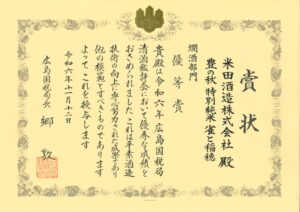 賞状
米田酒造株式会社 殿
豊の秋 特別純米 雀と稲穂
燗酒部門
優等賞
貴殿は令和六年広島国税局
清酒鑑評会において優秀な成績を
おさめられました これは平素酒造
技術の向上に
努力された成果であり
他の模範とすべきものであります
よってこれを授与します
令和六年十一月十二日
広島国税局長 郷 敦